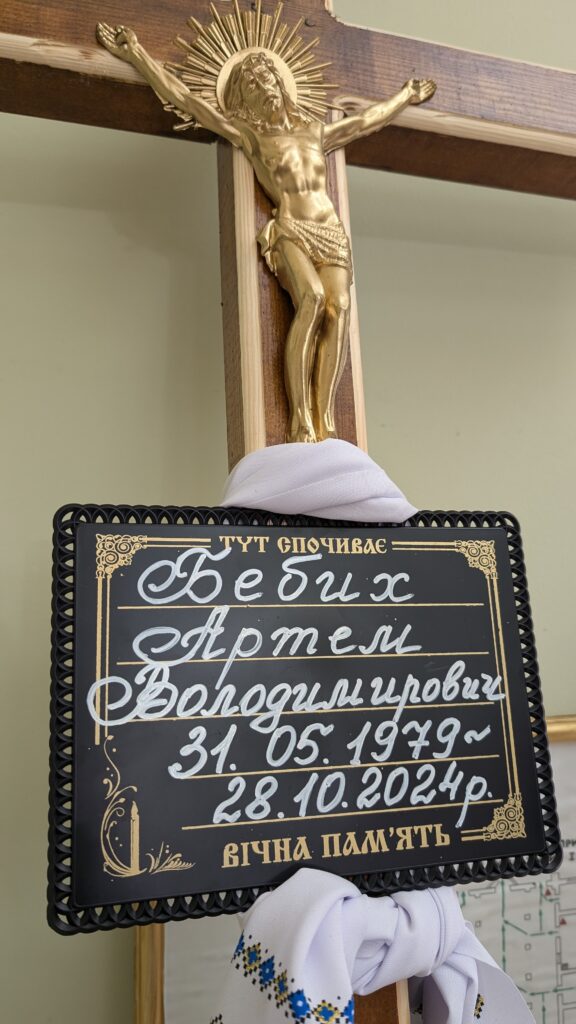 ТУТ СПОЧИВАЄ
Бебих
Артем
Володимирович
31.05.1979~
28.10.2024р.
ВІЧНА ПАМ'ЯТЬ